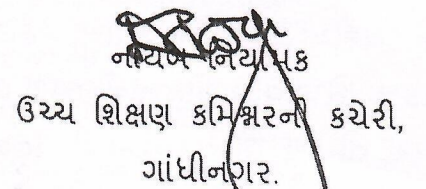 નાયબ નિયામક
ઉચ્ચ શિક્ષણ કમિશ્નરની કચેરી,
ગાંધીનગર.